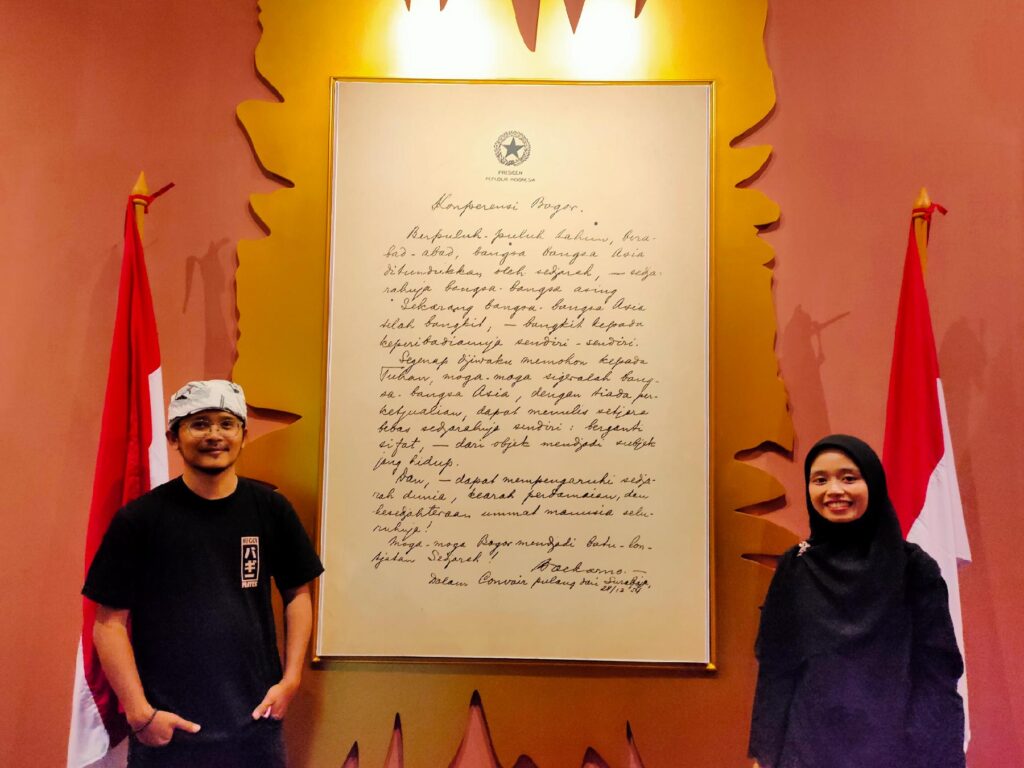 PRESIDEN
REPUBLIK INDONESIA
Konperensi Bogor.
Berpuluh-puluh tahun, bera-
bad-abad, bangsa bangsa Asia
ditundukkan oleh sedjarah, — sedja-
rahnja bangsa-bangsa asing
Sekarang bangsa-bangsa Asia
telah bangkit, — bangkit kepada
kepribadiannja sendiri-sendiri.
Segenap djiwaku memohon kepada
Tuhan, moga-moga sigeralah bang-
sa-bangsa Asia, dengan tiada per-
ketjualian, dapat menulis setjara
bebas sedjarahnja sendiri: berganti
sifat, — dari objek mendjadi subjek
jang hidup.
Dan, — dapat mempengaruhi sedja-
rah dunia, kearah perdamaian, dan
kesedjahteraan ummat manusia selu-
ruhnja!
Moga-moga Bogor mendjadi batu-lon-
tjatan Sedjarah!
Soekarno.—
Dalam Convair pulang dari Surabaja,
28/12 '54
パギニ